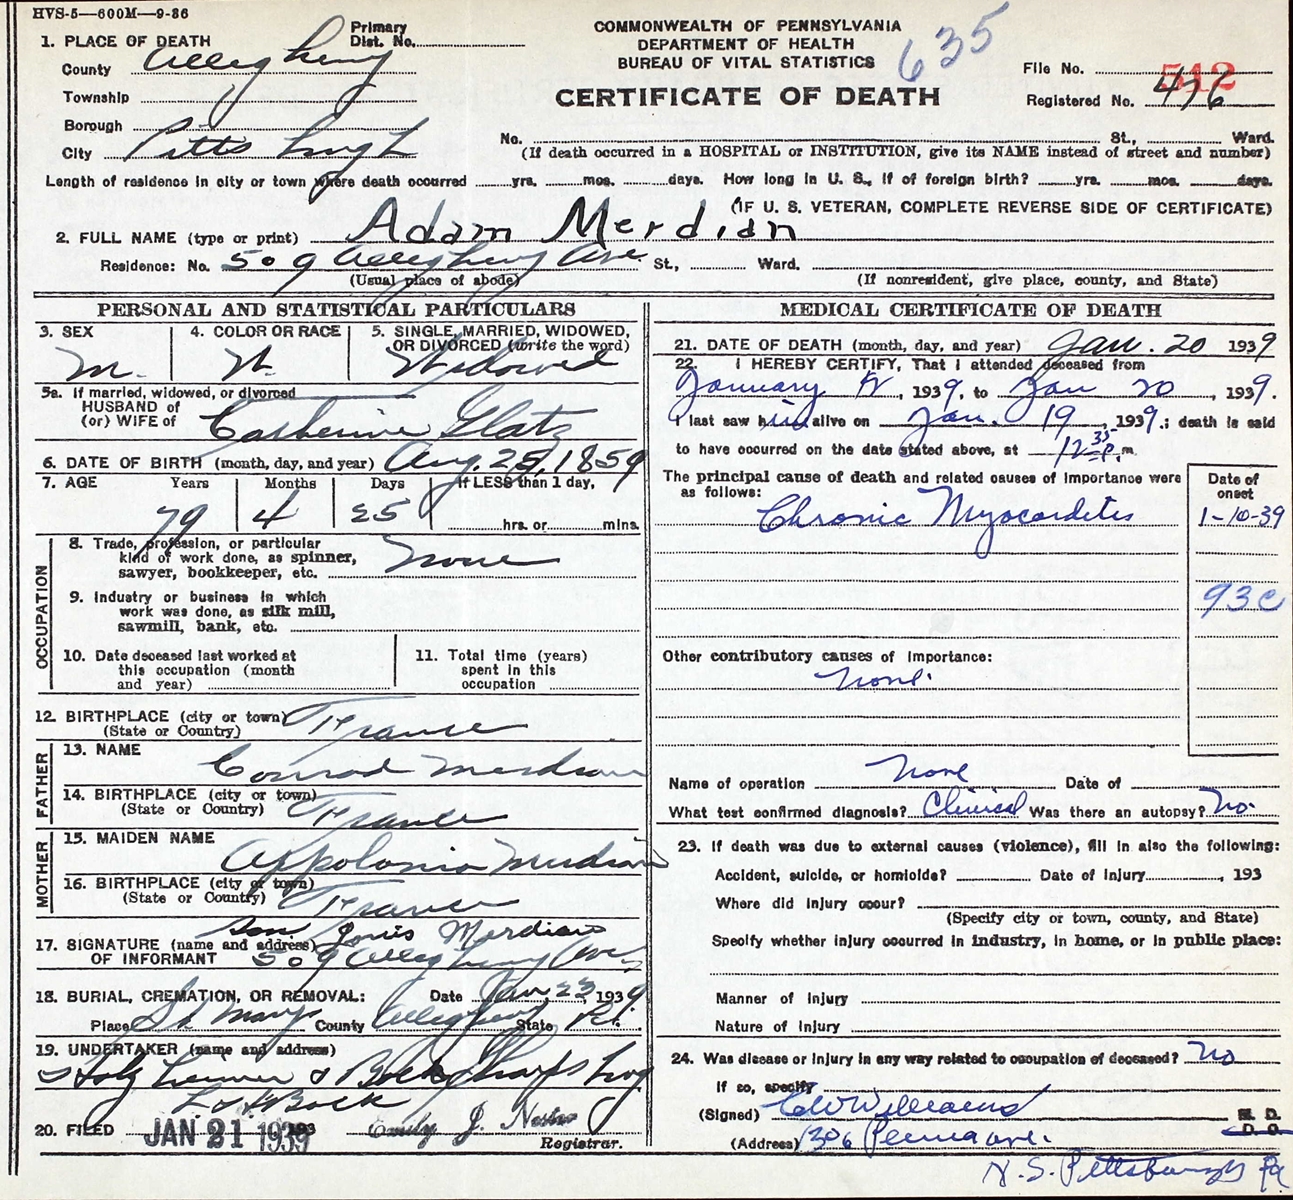 HVS-5—600M—9-36
COMMONWEALTH OF PENNSYLVANIA
DEPARTMENT OF HEALTH
BUREAU OF VITAL STATISTICS
635
CERTIFICATE OF DEATH
Primary Dist. No.
File No. 512
Registered No. 476
1. PLACE OF DEATH
County Allegheny
Township
Borough
City Pittsburgh
No. St., Ward.
(If death occurred in a HOSPITAL or INSTITUTION, give its NAME instead of street and number)
Length of residence in city or town where death occurred yrs. mos. days. How long in U. S., if of foreign birth? yrs. mos. days.
(IF U. S. VETERAN, COMPLETE REVERSE SIDE OF CERTIFICATE)
2. FULL NAME (type or print) Adam Merdian
Residence: No. 509 Allegheny Ave St., Ward.
(Usual place of abode) (If nonresident, give place, county, and State)
PERSONAL AND STATISTICAL PARTICULARS
3. SEX M.
4. COLOR OR RACE W.
5. SINGLE, MARRIED, WIDOWED, OR DIVORCED (write the word) Widowed
5a. If married, widowed, or divorced
HUSBAND of
(or) WIFE of Catherine Glatz
6. DATE OF BIRTH (month, day, and year) Aug. 25, 1859
7. AGE Years Months Days If LESS than 1 day,
79 4 25 hrs. or mins.
OCCUPATION
8. Trade, profession, or particular
kind of work done, as spinner,
sawyer, bookkeeper, etc. None
9. Industry or business in which
work was done, as silk mill,
sawmill, bank, etc.
10. Date deceased last worked at
this occupation (month
and year)
11. Total time (years)
spent in this
occupation
12. BIRTHPLACE (city or town) France
(State or Country)
FATHER
13. NAME Conrad Merdian
14. BIRTHPLACE (city or town) France
(State or Country)
MOTHER
15. MAIDEN NAME Appolonia Merdian
16. BIRTHPLACE (city or town) France
(State or Country)
17. SIGNATURE (name and address) Son Louis Merdian
OF INFORMANT 509 Allegheny Ave
18. BURIAL, CREMATION, OR REMOVAL: Date Jan 23 1939
Place St Marys County Allegheny State Pa.
19. UNDERTAKER (name and address)
& Bock Sharpsburg
Bock
20. FILED JAN 21 1939 193 Emily J.
Registrar.
MEDICAL CERTIFICATE OF DEATH
21. DATE OF DEATH (month, day, and year) Jan. 20 1939
22. I HEREBY CERTIFY, That I attended deceased from
January , 1939, to Jan 20, 1939.
I last saw him alive on Jan. 19, 1939.; death is said
to have occurred on the date stated above, at 12 35 P. m.
The principal cause of death and related causes of importance were
as follows:
Date of onset
Chronic Myocarditis 1-10-39
93c
Other contributory causes of importance:
None.
Name of operation None Date of
What test confirmed diagnosis? Clinical Was there an autopsy? No.
23. If death was due to external causes (violence), fill in also the following:
Accident, suicide, or homicide? Date of injury , 193
Where did injury occur?
(Specify city or town, county, and State)
Specify whether injury occurred in industry, in home, or in public place:
Manner of injury
Nature of injury
24. Was disease or injury in any way related to occupation of deceased? No
If so, specify
(Signed) CW Williams M. D.
D. O.
(Address) 1306 Penna ave.
N. S. Pittsburgh Pa